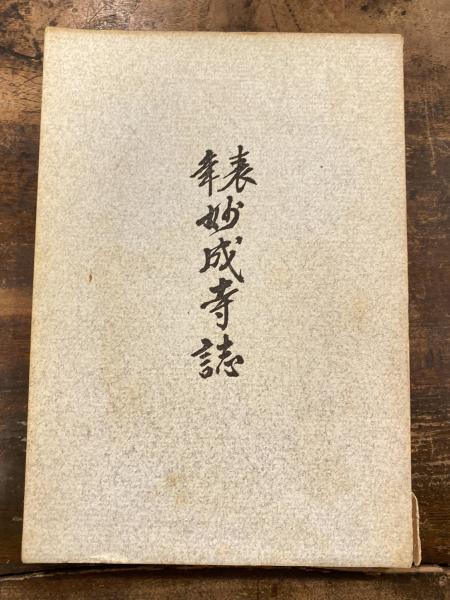 年表
妙成寺誌